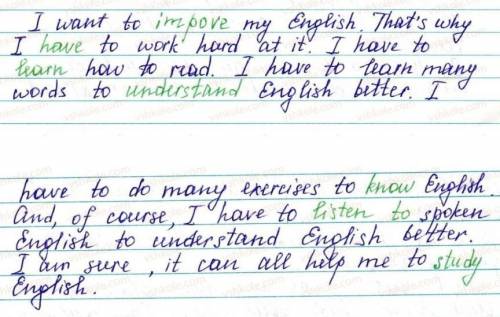 I want to impove my English. That's why
I have to work hard at it. I have to
learn how to read. I have to learn many
words to understand English better. I
have to do many exercises to know English.
And, of course, I have to listen to spoken
English to understand English better.
I am sure, it can all help me to study
English.